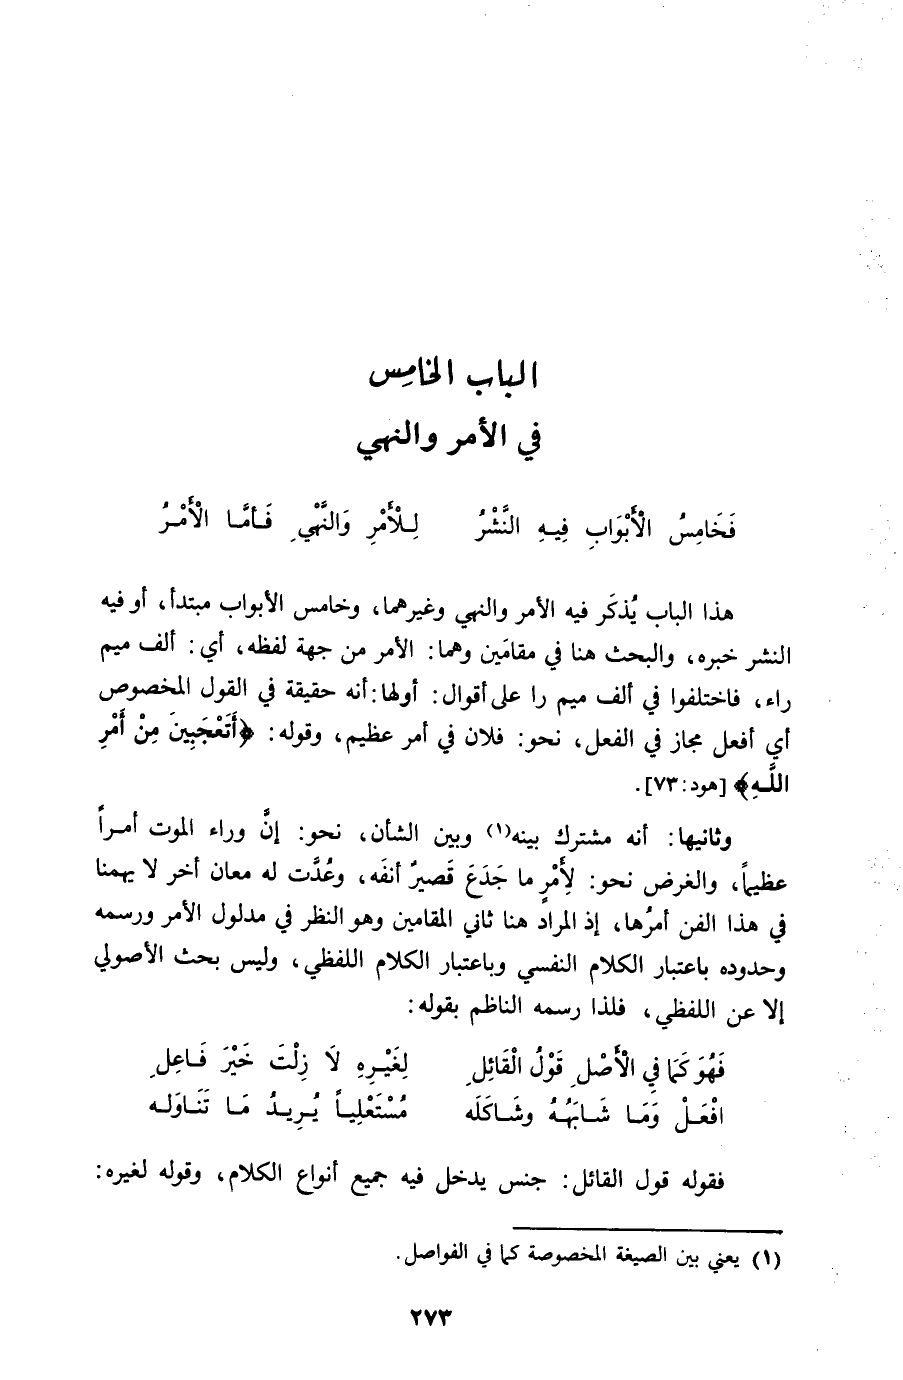 الباب الخامِس
في الأمر والنهي
فَخَامِسُ الْأَبْوَابِ فِيهِ النَّشْرُ لِلْأَمْرِ وَالنَّهْيِ فَأَمَّا الْأَمْرُ
هذا الباب يُذكَر فيه الأمر والنهي وغيرهما، وخامس الأبواب مبتدأ، أو فيه
النشر خبره، والبحث هنا في مقامَين وهما: الأمر من جهة لفظه، أي: ألف ميم
راء، فاختلفوا في ألف ميم را على أقوال: أولها: أنه حقيقة في القول المخصوص
أي أفعل مجاز في الفعل، نحو: فلان في أمر عظيم، وقوله: ﴿أَتَعْجَبِينَ مِنْ أَمْرِ
اللَّهِ﴾ [هود: ٧٣].
وثانيها: أنه مشترك بينه(١) وبين الشأن، نحو: إنَّ وراء الموت أمراً
عظيماً، والغرض نحو: لِأَمْرٍ ما جَدَعَ قَصيرٌ أنفَه، وعُدَّت له معان أخر لا يهمنا
في هذا الفن أمرُها، إذ المراد هنا ثاني المقامين وهو النظر في مدلول الأمر ورسمه
وحدوده باعتبار الكلام النفسي وباعتبار الكلام اللفظي، وليس بحث الأصولي
إلا عن اللفظي، فلذا رسمه الناظم بقوله:
فَهُوَ كَمَا فِي الْأَصْلِ قَوْلُ الْقَائِلِ لِغَيْرِهِ لَا زِلْتَ خَيْرَ فَاعِلِ
افْعَلْ وَمَا شَابَهُهُ وشَاكَلَه مُسْتَعْلِياً يُرِيدُ مَا تَنَاوَلَه
فقوله قول القائل: جنس يدخل فيه جميع أنواع الكلام، وقوله لغيره:
(١) يعني بين الصيغة المخصوصة كما في الفواصل.
٢٧٣